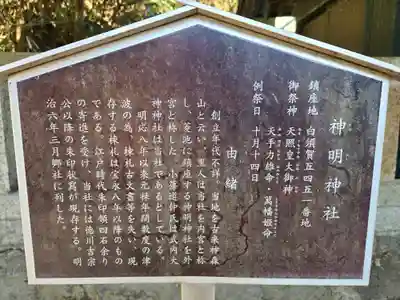 神明神社
鎮座地 白須賀五四五一番地
御祭神 天照皇大御神
天手力雄命・萬幡姫命
例祭日 十月十四日
由緒
創立年代不詳。当地を古来神森
山と云い、里人は当社を内宮と称
し、菱池に鎮座する神明神社を外
宮と称した。小笠原神氏は式内大
神神社は当社であるとしている。
明応八年以来元禄年間数度の津
波の為、棟札古文書等を失い、現
存する棟札は宝永八年以降のもの
である。江戸時代朱印領四石余り
の寄進を受け、当社には徳川吉宗
公以降の朱印状写が現存する。明
治六年三月郷社に列した。